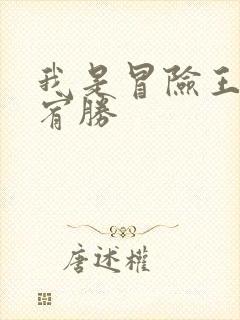 我是冒險王
宥勝
唐述權